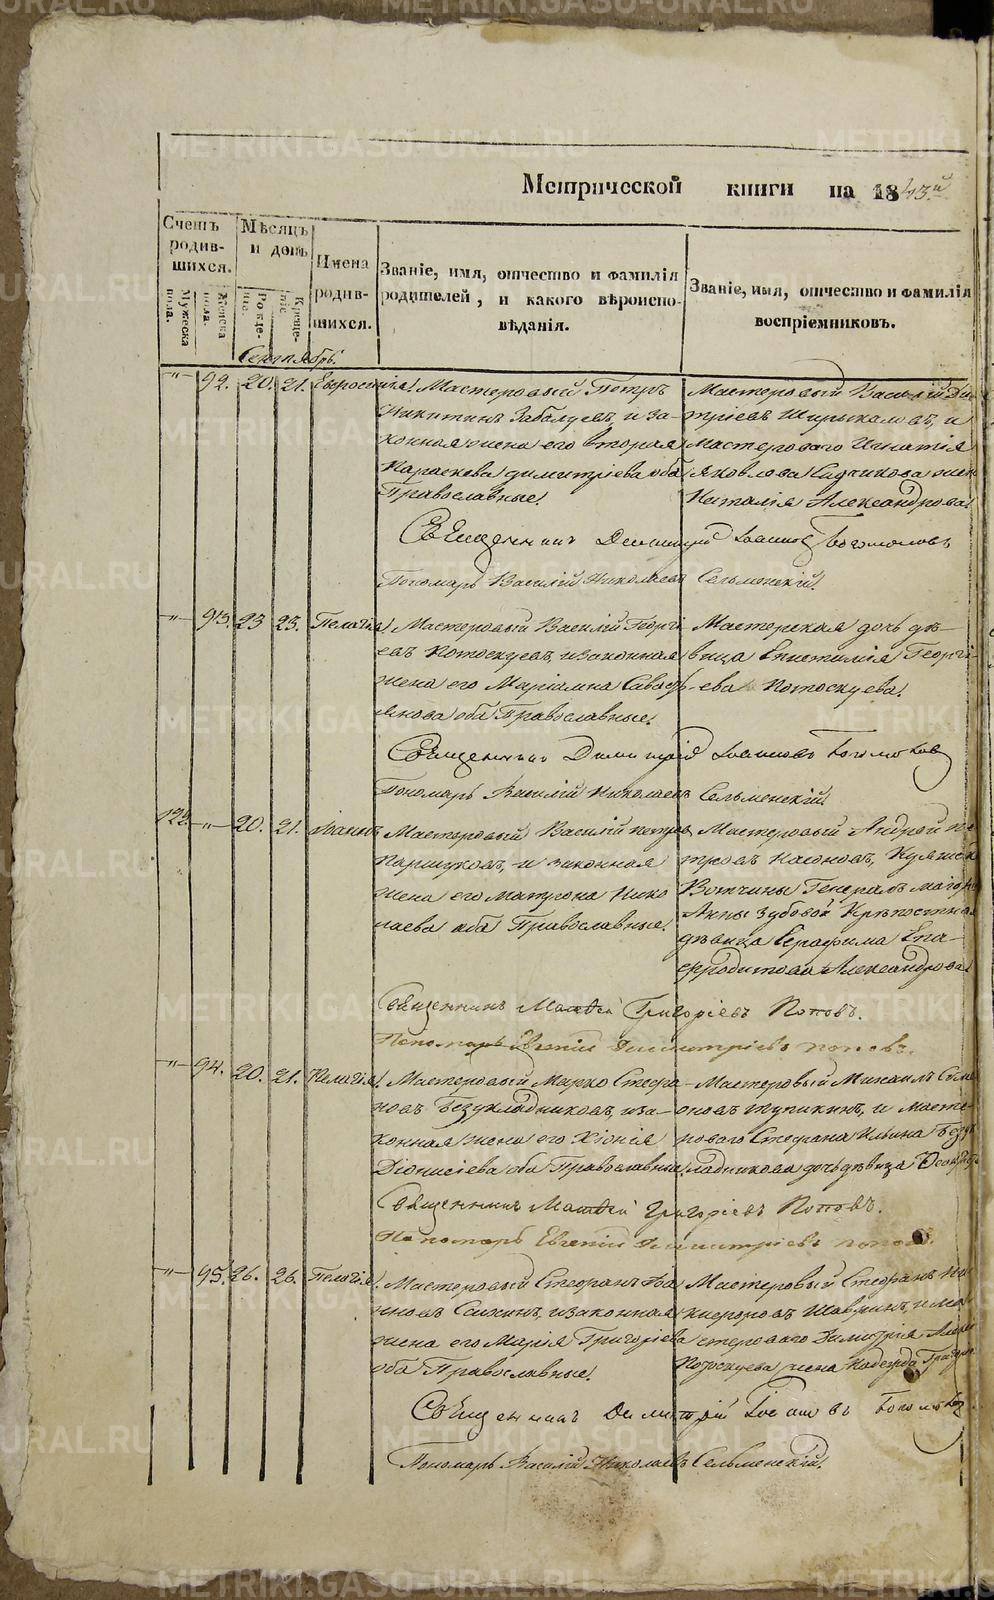 METRIKI.GASO-URAL.RU
Метрической книги на 1843.й
Счетъ родившихся.
Мужеска пола.
Женска пола.
Мѣсяцъ и день
Рожденіе.
Крещеніе
Имена родившихся.
Званіе, имя, отчество и фамилія
родителей, и какого вѣроиспо-
вѣданія.
Званіе, имя, отчество и фамилія
воспріемниковъ.
Сентябрь.
-"- 92. 20. 21. Евросинія! Мастеровый Петръ
Никитинъ Забалуевъ, и за-
конная жена его вторая
Параскева Димитріева оба
Православные!
Мастеровый Василій Ди-
тріевъ и
Мастероваго Игнатія
Яковлева Садчикова жен
Наталія Александрова!
Священникъ Димитрій Іоанновъ Богомоловъ
Пономарь Василій Николаевъ Сельменскій!
-"- 93. 23 23. Пелагія! Мастеровый Василій Георгі-
евъ Потоскуевъ, и законная
жена его Маріамна Савастъ-
янова оба Православные!
Мастерская дочь дѣ-
вица Епистимія Георгі-
ева Потоскуева!
Священникъ Димитрій Іоанновъ Богомоловъ
Пономарь Василій Николаевъ Сельменскій!
122. -"- 20. 21. Іоаннъ Мастеровый Василій Петровъ
Паршуковъ, и законная
жена его Матрона Нико
лаева оба Православные!
Мастеровый Андрей Пе
тровъ Насоновъ,
Вотчины Генералъ маіора
Анны Зубовой Крѣпостная
дѣвица Серафима Епа-
фродитова Александрова!
Священникъ Матѳей Григоріевъ Поповъ.
Пономарь Евгеній Димитріевъ Поповъ.
-"- 94. 20. 21. Пелагія! Мастеровый Марко Стефа-
новъ Безукладниковъ, и за-
конная жена его Хіонія
Діонисіева оба Православные!
Мастеровый Михаилъ Семе
оновъ Тупикинъ, и Масте-
роваго Стефана Ильина Безук
ладникова дочь дѣвица
Священникъ Матѳей Григоріевъ Поповъ.
Пономарь Евгеній Димитріевъ Поповъ.
-"- 95. 26. 26. Пелагія! Мастеровый Стефанъ Іоа
нновъ и законная
жена его Марія Григоріева
оба Православные!
Мастеровый Стефанъ Ни
кифоровъ Шавринъ, и ма
стероваго Димитрія
Потоскуева жена Надежда Григор
Священникъ Димитрій Іоанновъ Богомоловъ
Пономарь Василій Николаевъ Сельменскій!